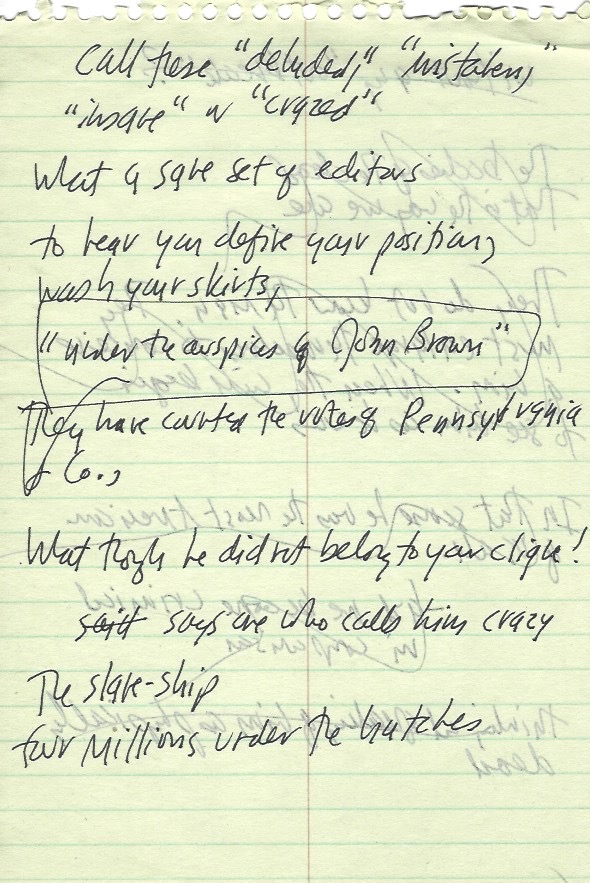 Call these "deluded," "mistaken,"
"insane" or "crazed"
What a sane set of editors
to hear you define your position,
wash your skirts,
"under the auspices of John Brown"
They have counted the votes of Pennsylvania
& Co.,
What though he did not belong to your clique!
said says one who calls him crazy
The slave-ship
four millions under the hatches